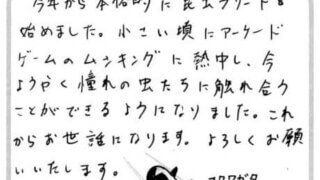 今年から本格的に昆虫ブリードを
始めました。小さい頃にアーケード
ゲームのムシキングに熱中し、今
ようやく憧れの虫たちに触れ合う
ことができるようになりました。これ
からお世話になります。よろしくお願
いいたします。